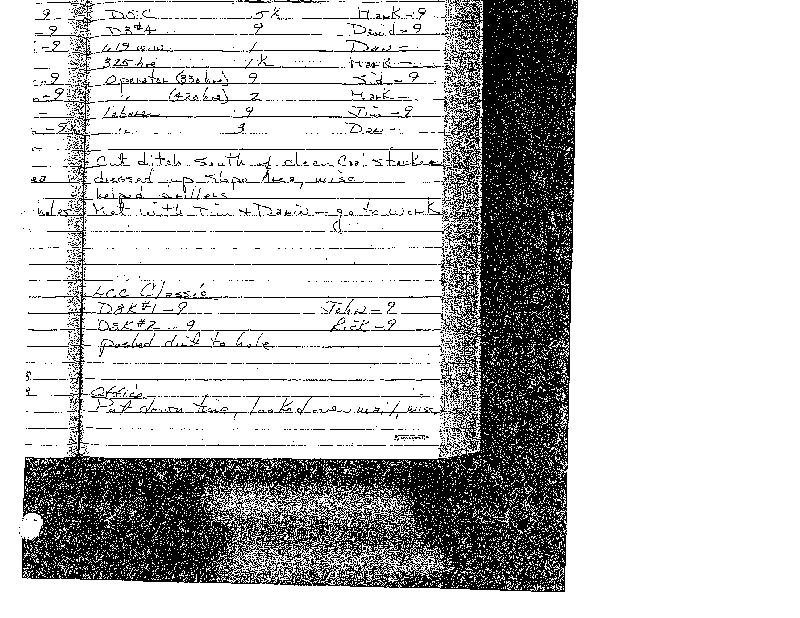 9 D5C 5½ Mark-9
-9 D8#4 9 David=9
-9 619 1 Dave -
325 hoe 1½ Mark -
-9 Operator (330 hoe) 9 Sid-9
-9 " (420 hoe) 2 Mark -
- Laborer 9 Jim -9
-9 " 3 Dave -
Cut ditch South of clean Coal stacker
dressed up slope Area, misc
helped
holes Met with Jim & Darwin - go to work
LCC Classic
D8K#1-9 John-9
D8K#2-9 Rick-9
pushed dirt to hole
Office
Put down time, looked over mail, misc